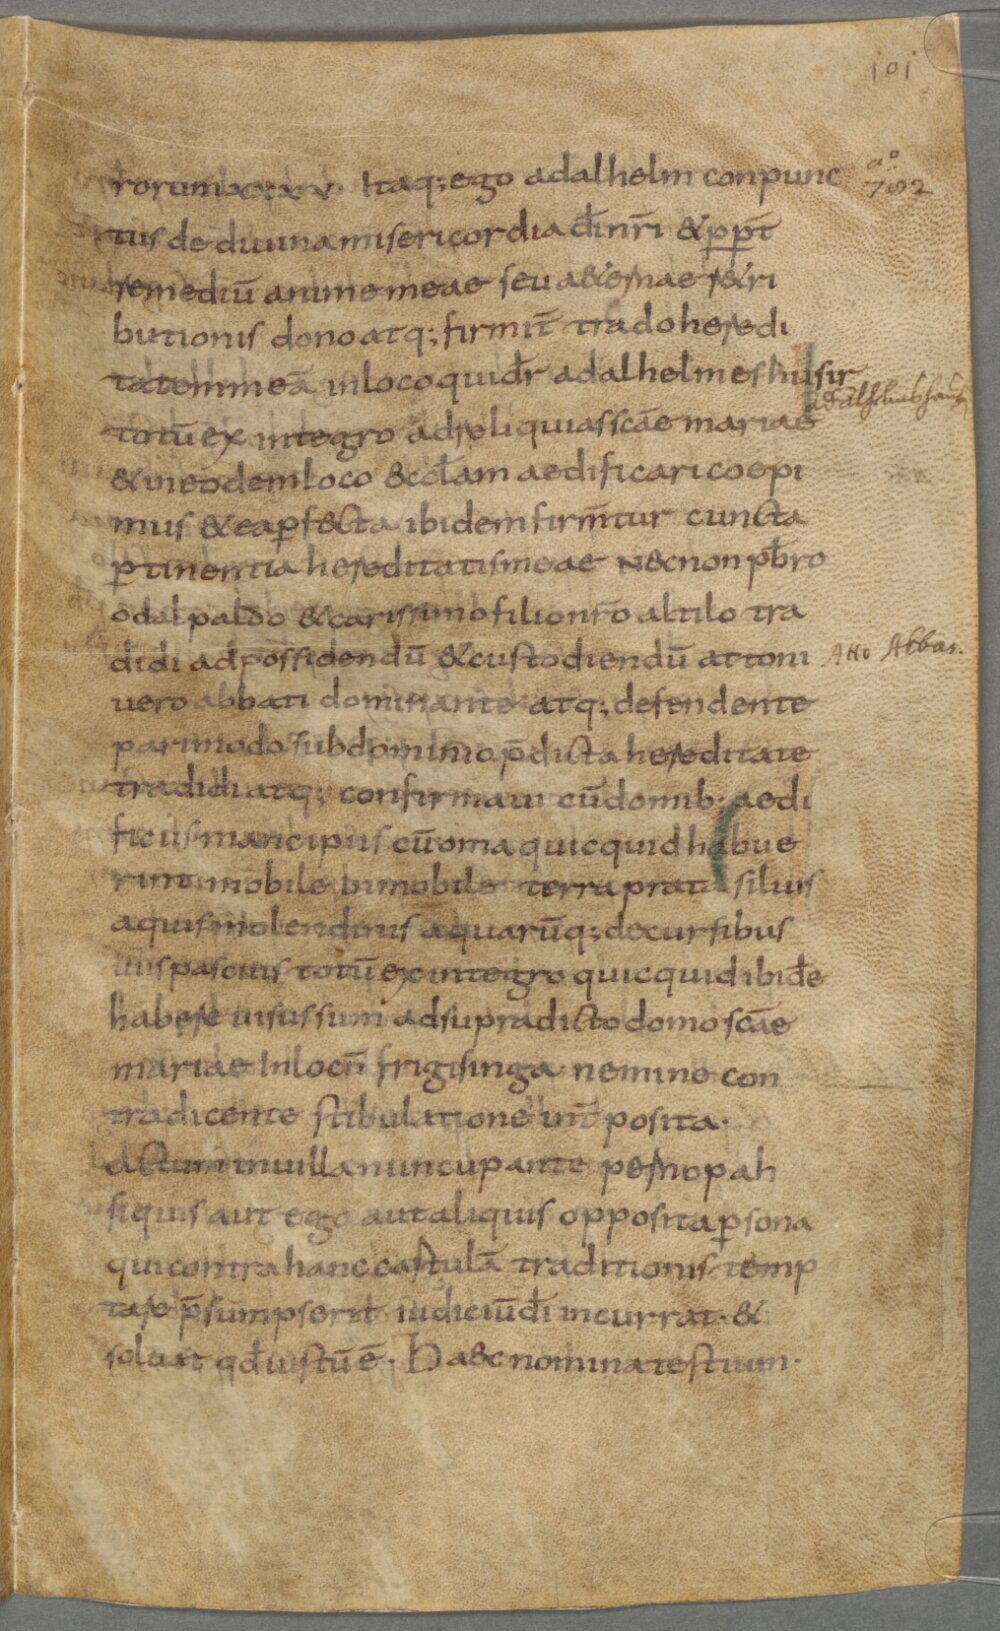 101
rorum xxxv. Itaq; ego adalhelm conpunc
a° 792
tus de diuina misericordia dīnr̄i & ꝓpt̄
remediū anime meae seu a&ernae r&ri
butionis dono atq; firmit̄ trado heredi
tatem meā in loco quid̄r adalhelmeshusir
Adalhelmshausen
totū ex integro ad reliquias sc̄ae mariae
& in eodem loco & eccl̄am aedificari coepi
mus & ea ꝑf&cta ibidem firm̄tur cuncta
ꝑtinentia hereditatis meae Necnon pb̄ro
odalpaldo & carissimo filio nr̄o altilo tra
didi ad possidendū & custodiendū attoni
Atto Abbas.
uero abbati dominante atq; defendente
pari modo sub dominio p̄dicta hereditate
tradidi atq; confirmaui cū domib; aedi
ficiis mancipiis cū om̄a quicquid habue
rint mobile inmobile terra prata siluis
aquis molendinis aquarūq; decursibus
uiis pascuis totū ex integro quicquid ibidē
habere uisus sum ad supradicto domo sc̄ae
mariae In locū frigisinga nemine con
tradicente stibulatione int̄ posita.
actum in uilla nuncupante pernopah
siquis aut ego aut aliquis opposita ꝑsona
qui contra hanc cartulā traditionis temp
tare p̄sumpserit iudiciū dī incurrat. &
soluat qd̄ iustū ē. Haec nomina testium.